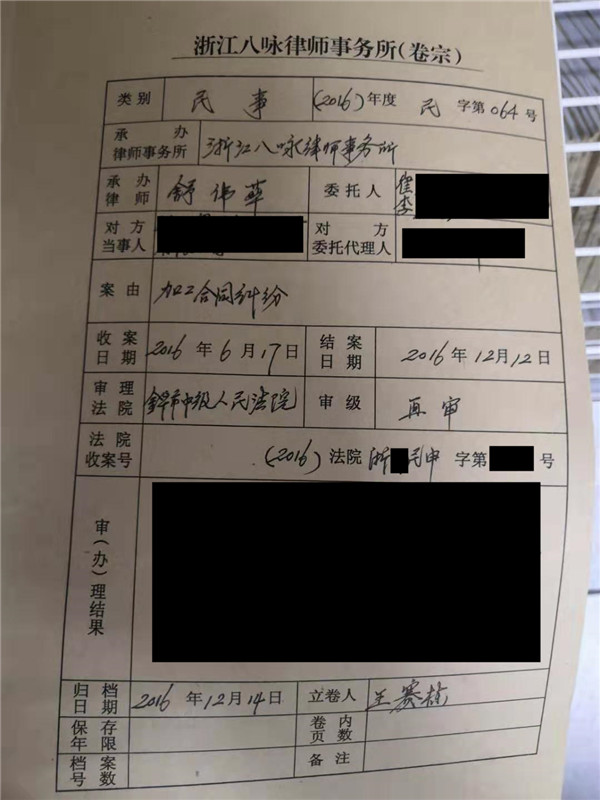 浙江八咏律师事务所(卷宗)
类别 民事 (2016)年度 民 字第064号
承办律师事务所 浙江八咏律师事务所
承办律师 舒伟苹 委托人 崔 李
对方当事人 对方委托代理人
案由 加工合同纠纷
收案日期 2016年6月17日 结案日期 2016年12月12日
审理法院 金华市中级人民法院 审级 再审
法院收案号 (2016)法院 浙 民申 字第 号
审(办)理结果
归档日期 2016年12月14日 立卷人 王赛
保存年限 卷内页数
档案号数 备注